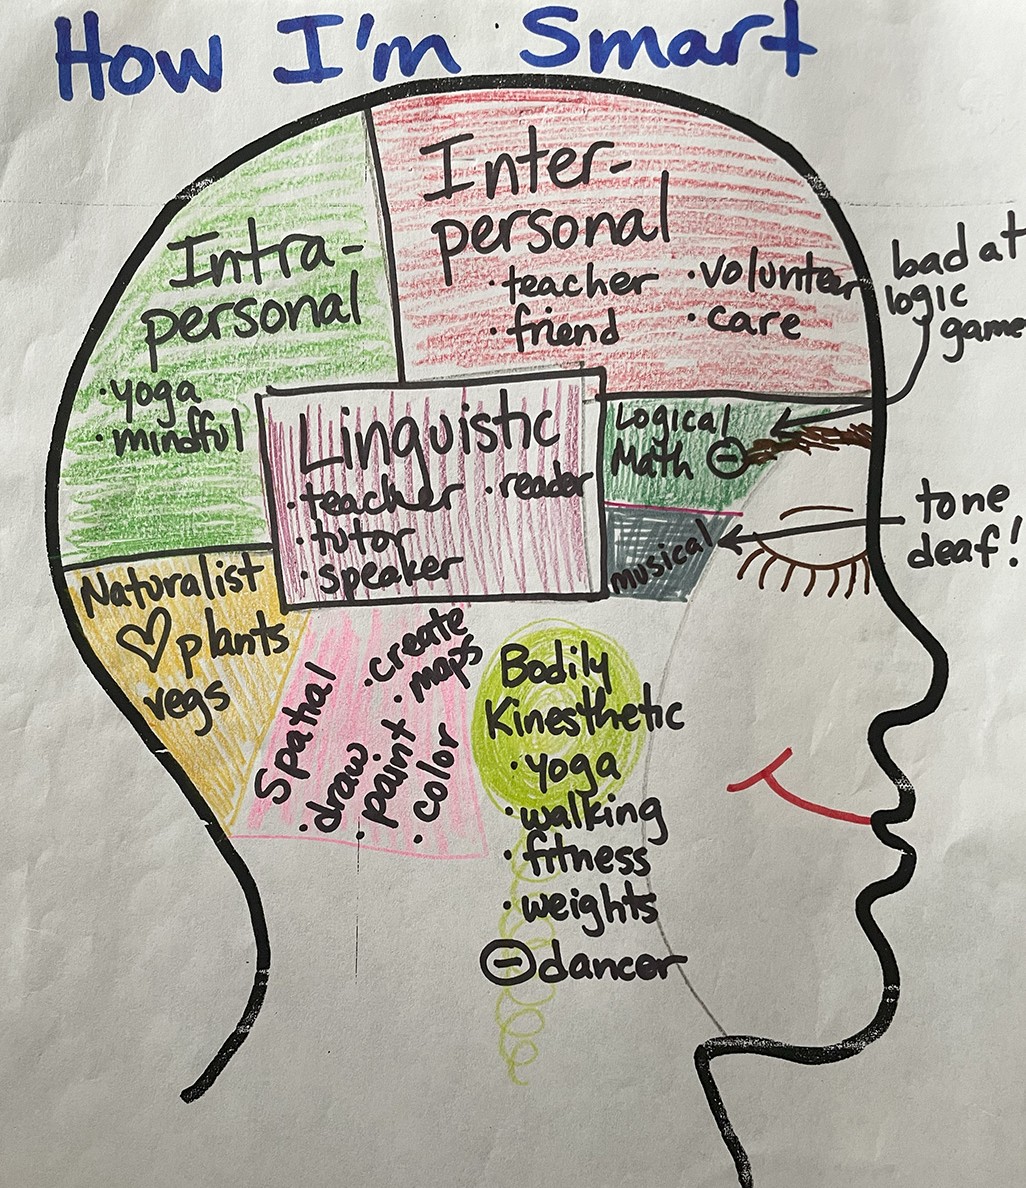 How I'm Smart
Inter-
personal
· teacher
· friend
· volunteer
· care
Intra-
personal
· yoga
· mindful
bad at
logic
game
Linguistic
· teacher
· reader
· tutor
· speaker
Logical
Math ⊖
musical
tone
deaf!
Naturalist
♡ plants
vegs
Spatial
· draw
· paint
· color
· create
· maps
Bodily
Kinesthetic
· yoga
· walking
· fitness
· weights
⊖ dancer